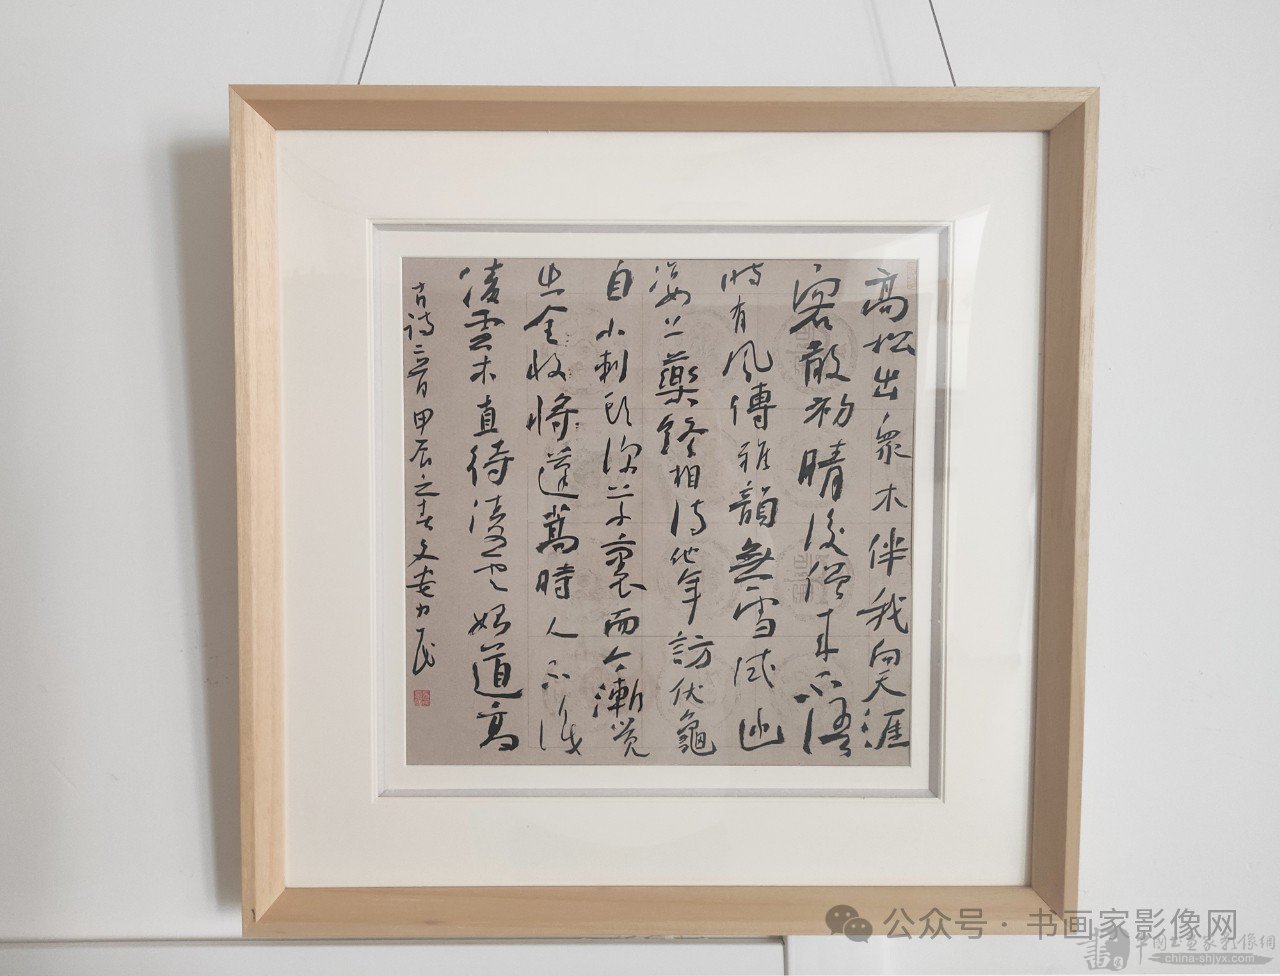 高松出眾木伴我向天涯
客散初晴後僧來不語
時有風傳雅韻無雪試幽
姿上藥終相待他年訪伏龜
自小刺頭深草裏而今漸覺
出金收將蓬蒿時人不識
凌雲木直待凌雲始道高
古詩二首甲辰之春文安力民
公众号·书画家影像网
中国书画家影像網
china-shjyx.com